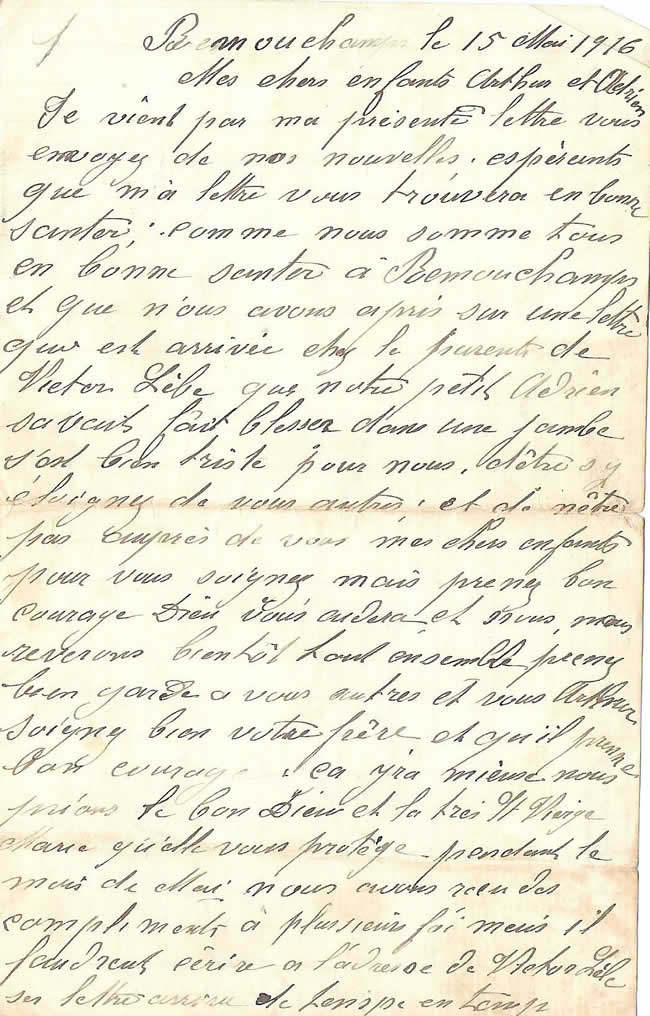 Remouchamps le 15 Mai 1916
Mes chers enfants Arthur et Adrien
Je vient par ma présente lettre vous
envoyez de nos nouvelles. espèrants
que m'a lettre vous trouvera en bonne
santer; comme nous somme tous
en bonne santer à Remouchamps
et que n'ous avons apris sur une lettre
que est arrivée chez le parents de
Victor Lèbe que notre petit Adrien
savait fait blesser dans une jambe
s'est bien triste pour nous. d'être sy
éloignez de vous autres. et de nêtre
pas auprès de vous mes chers enfants
pour vous soignez mais prenez bon
courage Dieu vous aidera et nous nous
reverons bientôt tout ensemble prenez
bien garde a vous autres et vous Arthur
soignez bien votre frère et qu'il prenne
bon courage. ça y'ra mieux nous
prions le bon Dieu et la très St Vierge
Marie qu'elle vous protège pendant le
mois de Mai nous avons recu des
compliments à plussieurs foi mais il
faudrent écrire a l'adresse de Victor Lèbe
ses lettre arrive de temps en temp